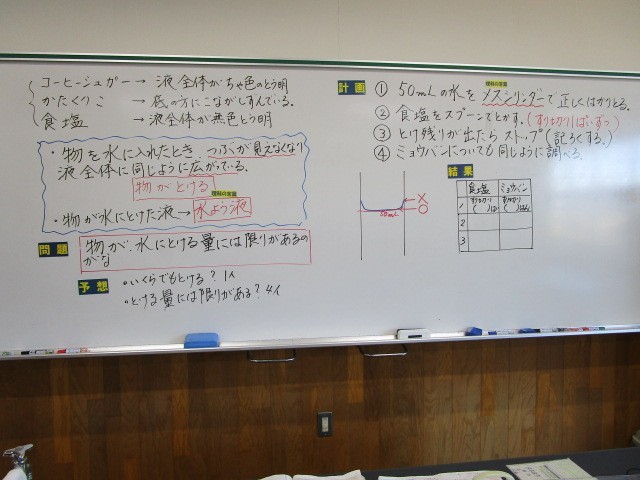 コーヒーシュガー → 液全体がちゃ色のとう明
かたくりこ → 底の方にこながしずんでいる。
食塩 → 液全体が無色とう明
・物を水に入れたとき、つぶが見えなくなり
液全体に同じように広がっている。
物がとける
理科の言葉
・物が水にとけた液→水よう液
問題
物が、水にとける量には限りがあるの
かな
予想
・いくらでもとける？ 1人
・とける量には限りがある？ 4人
計画
① 50mLの水をメスシリンダーで正しくはかりとる。
② 食塩をスプーンでとかす。(すりきり1ぱいずつ)
③ とけ残りが出たらストップ(記ろくする。)
④ ミョウバンについても同じように調べる。
×
○
50mL
結果
食塩 ミョウバン
1 すりきり ( )はい すりきり ( )はい
2
3